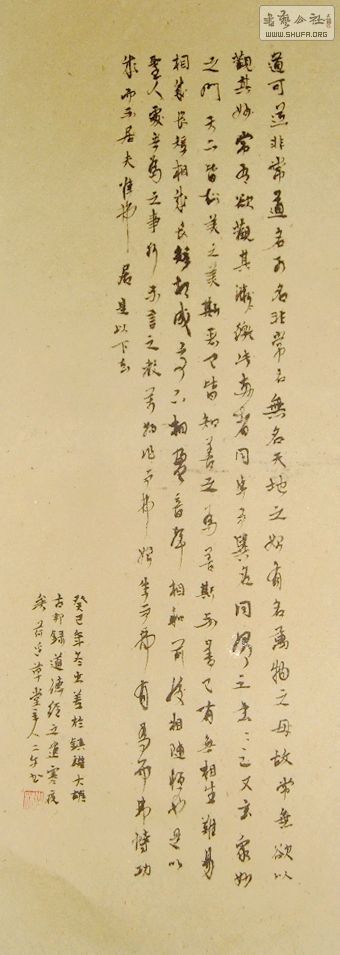 書藝公社
WWW.SHUFA.ORG
道可道非常道名可名非常名無名天地之始有名萬物之母故常無欲以
觀其妙常有欲觀其徼此兩者同出而異名同謂之玄玄之又玄衆妙
之門天下皆知美之美斯惡已皆知善之為善斯不善已有無相生難易
相成長短相成長短相成高下相盈音聲相和前後相隨恒也是以
聖人處無為之事行不言之教萬物作而弗始生而弗有為而弗恃功
成而不居夫惟弗居是以下去
癸巳年冬書於鎮雄大雄
古邦錄道德經之道寒夜
草堂主人二年書